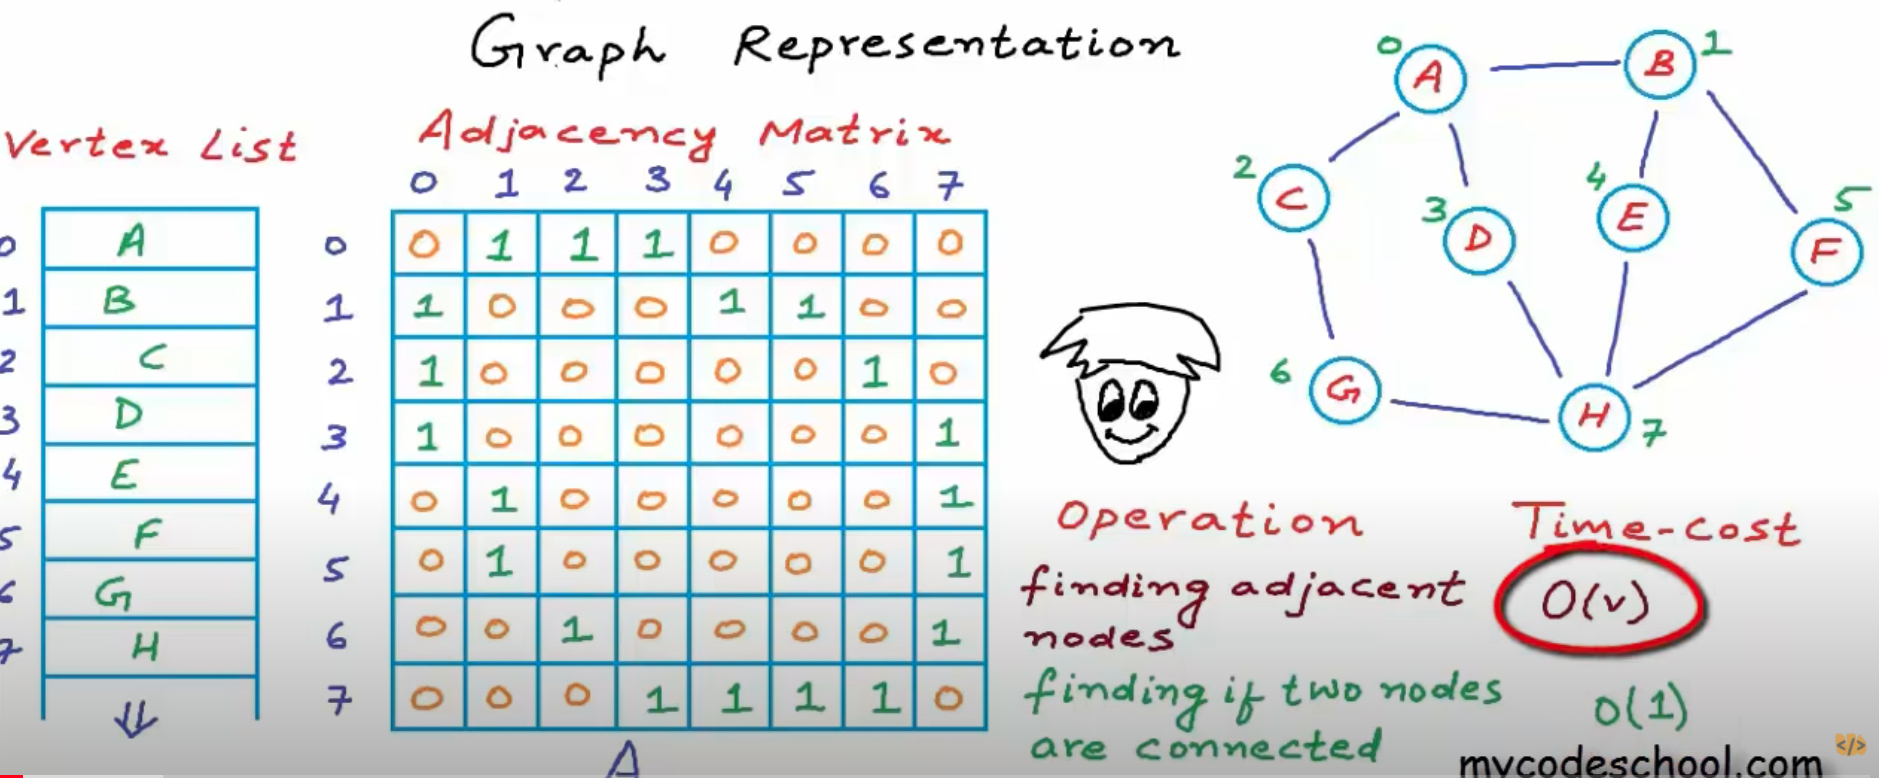 Graph Representation
Vertex List
Adjacency Matrix
0 1 2 3 4 5 6 7
0 A
1 B
2 C
3 D
4 E
5 F
6 G
7 H
0 0 1 1 1 0 0 0 0
1 1 0 0 0 1 1 0 0
2 1 0 0 0 0 0 1 0
3 1 0 0 0 0 0 0 1
4 0 1 0 0 0 0 0 1
5 0 1 0 0 0 0 0 1
6 0 0 1 0 0 0 0 1
7 0 0 0 1 1 1 1 0
A
0 A
B 1
2 C
3 D
4 E
5 F
6 G
H 7
Operation Time-cost
finding adjacent O(v)
nodes
finding if two nodes O(1)
are connected
mycodeschool.com
</>